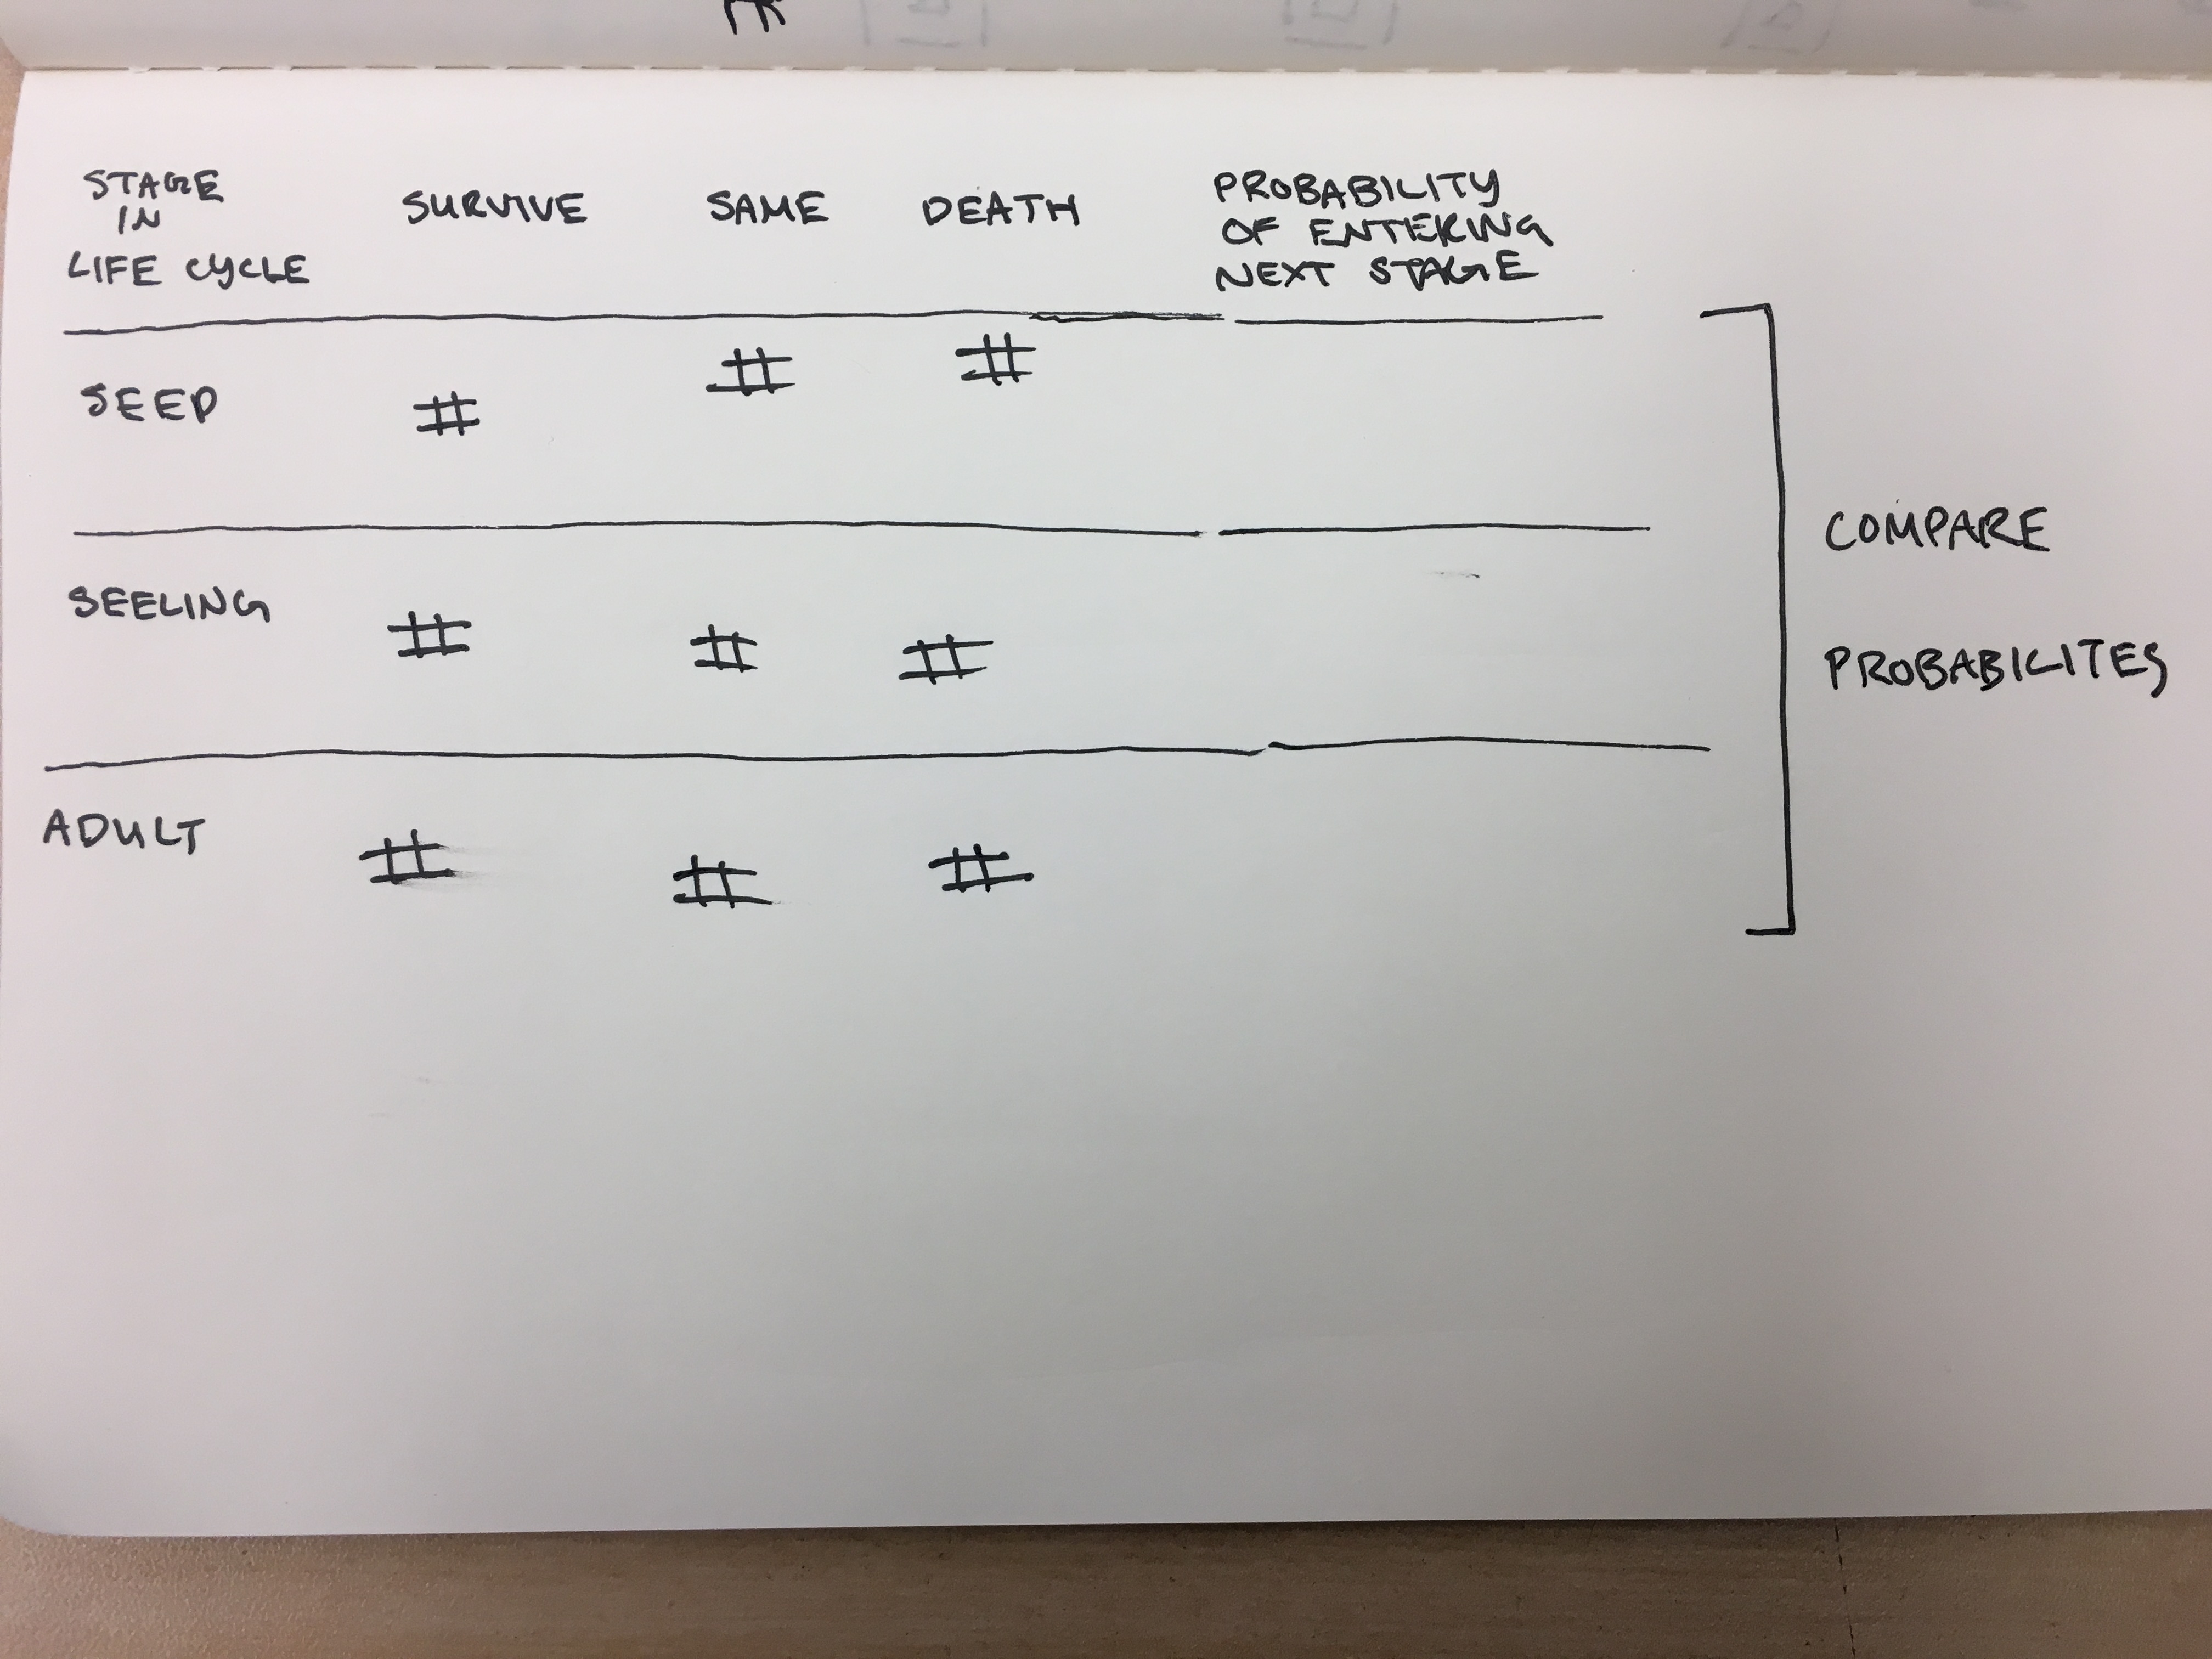 STAGE
IN
LIFE CYCLE
SURVIVE
SAME
DEATH
PROBABILITY
OF ENTERING
NEXT STAGE
SEED
#
#
#
SEELING
#
#
#
ADULT
#
#
#
COMPARE
PROBABILITES